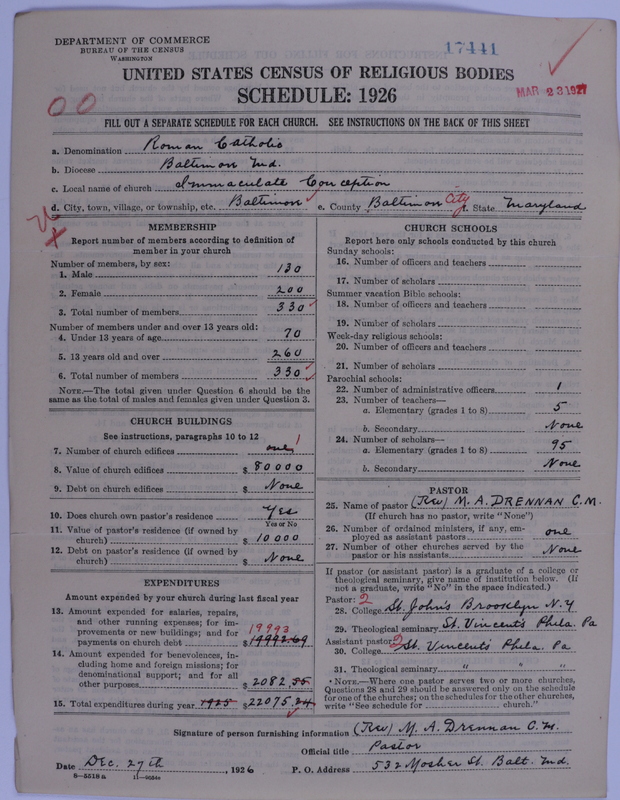 DEPARTMENT OF COMMERCE
BUREAU OF THE CENSUS
WASHINGTON
17441
MAR 23 1927
UNITED STATES CENSUS OF RELIGIOUS BODIES
SCHEDULE: 1926
00
FILL OUT A SEPARATE SCHEDULE FOR EACH CHURCH. SEE INSTRUCTIONS ON THE BACK OF THIS SHEET
a. Denomination Roman Catholic
b. Diocese Baltimore Md.
c. Local name of church Immaculate Conception
d. City, town, village, or township, etc. Baltimore e. County Baltimore City f. State Maryland
MEMBERSHIP
Report number of members according to definition of
member in your church
Number of members, by sex:
1. Male 130
2. Female 200
3. Total number of members 330
Number of members under and over 13 years old:
4. Under 13 years of age 70
5. 13 years old and over 260
6. Total number of members 330
NOTE.—The total given under Question 6 should be the
same as the total of males and females given under Question 3.
CHURCH BUILDINGS
See instructions, paragraphs 10 to 12
7. Number of church edifices one 1
8. Value of church edifices $ 80000
9. Debt on church edifices $ None
10. Does church own pastor's residence Yes
Yes or No
11. Value of pastor's residence (if owned by
church) $ 10000
12. Debt on pastor's residence (if owned by
church) $ None
EXPENDITURES
Amount expended by your church during last fiscal year
13. Amount expended for salaries, repairs,
and other running expenses; for im-
provements or new buildings; and for 19993
payments on church debt $ 19992.69
14. Amount expended for benevolences, in-
cluding home and foreign missions; for
denominational support; and for all
other purposes $ 2082.55
15. Total expenditures during year 1925 $ 22075.24
CHURCH SCHOOLS
Report here only schools conducted by this church
Sunday schools:
16. Number of officers and teachers
17. Number of scholars
Summer vacation Bible schools:
18. Number of officers and teachers
19. Number of scholars
Week-day religious schools:
20. Number of officers and teachers
21. Number of scholars
Parochial schools:
22. Number of administrative officers 1
23. Number of teachers—
a. Elementary (grades 1 to 8) 5
b. Secondary None
24. Number of scholars—
a. Elementary (grades 1 to 8) 95
b. Secondary None
PASTOR
25. Name of pastor (Rev) M. A. DRENNAN C.M.
(If church has no pastor, write "None")
26. Number of ordained ministers, if any, em-
ployed as assistant pastors one
27. Number of other churches served by the
pastor or his assistants None
If pastor (or assistant pastor) is a graduate of a college or
theological seminary, give name of institution below. (If
not a graduate, write "No" in the space indicated.)
Pastor: 2
28. College St. John's Broooclyn N.Y
29. Theological seminary St. Vincent's Phila. Pa
Assistant pastor: 2
30. College St. Vincent's Phila. Pa
31. Theological seminary " " "
NOTE.—Where one pastor serves two or more churches,
Questions 28 and 29 should be answered only on the schedule
for one of the churches; on the schedules for the other churches,
write "See schedule for church."
Signature of person furnishing information (Rev) M. A. Drennan C.M.
Official title Pastor
Date Dec. 27th, 1926 P. O. Address 532 Mosher St. Balt. Md.
8—5518a